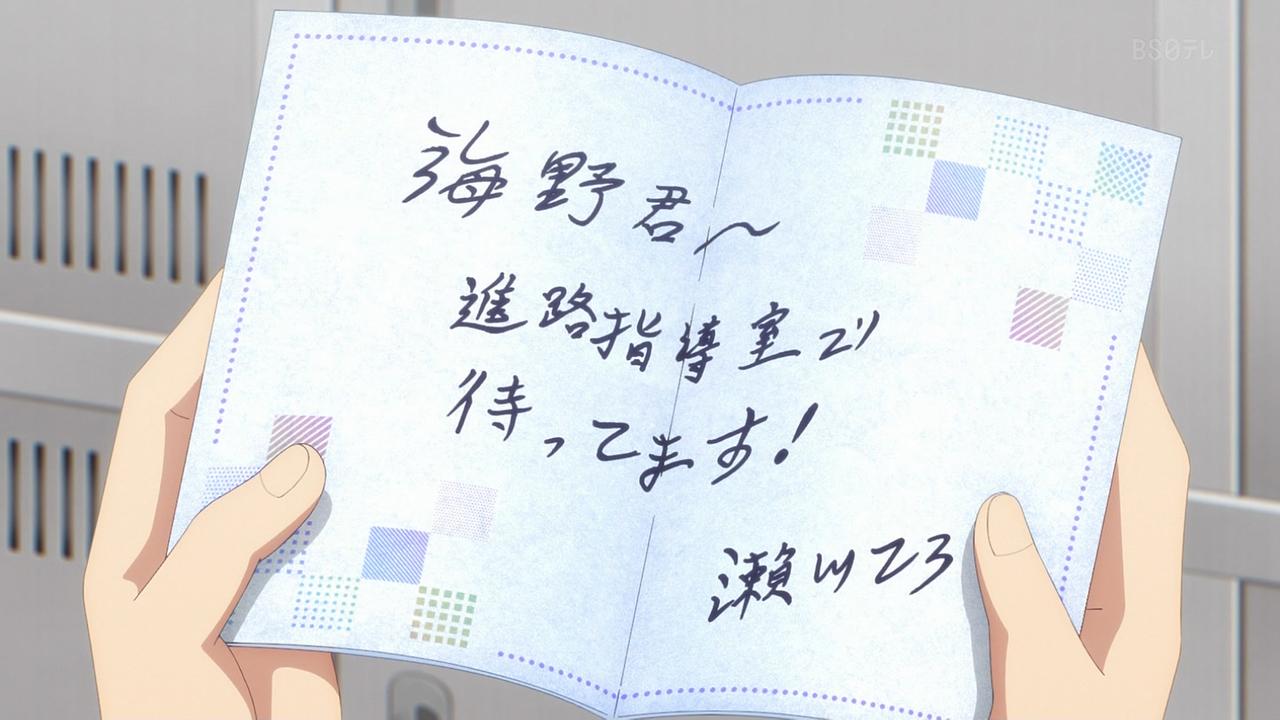 BS日テレ
海野君へ
進路指導室で
待ってます!
瀬川てる